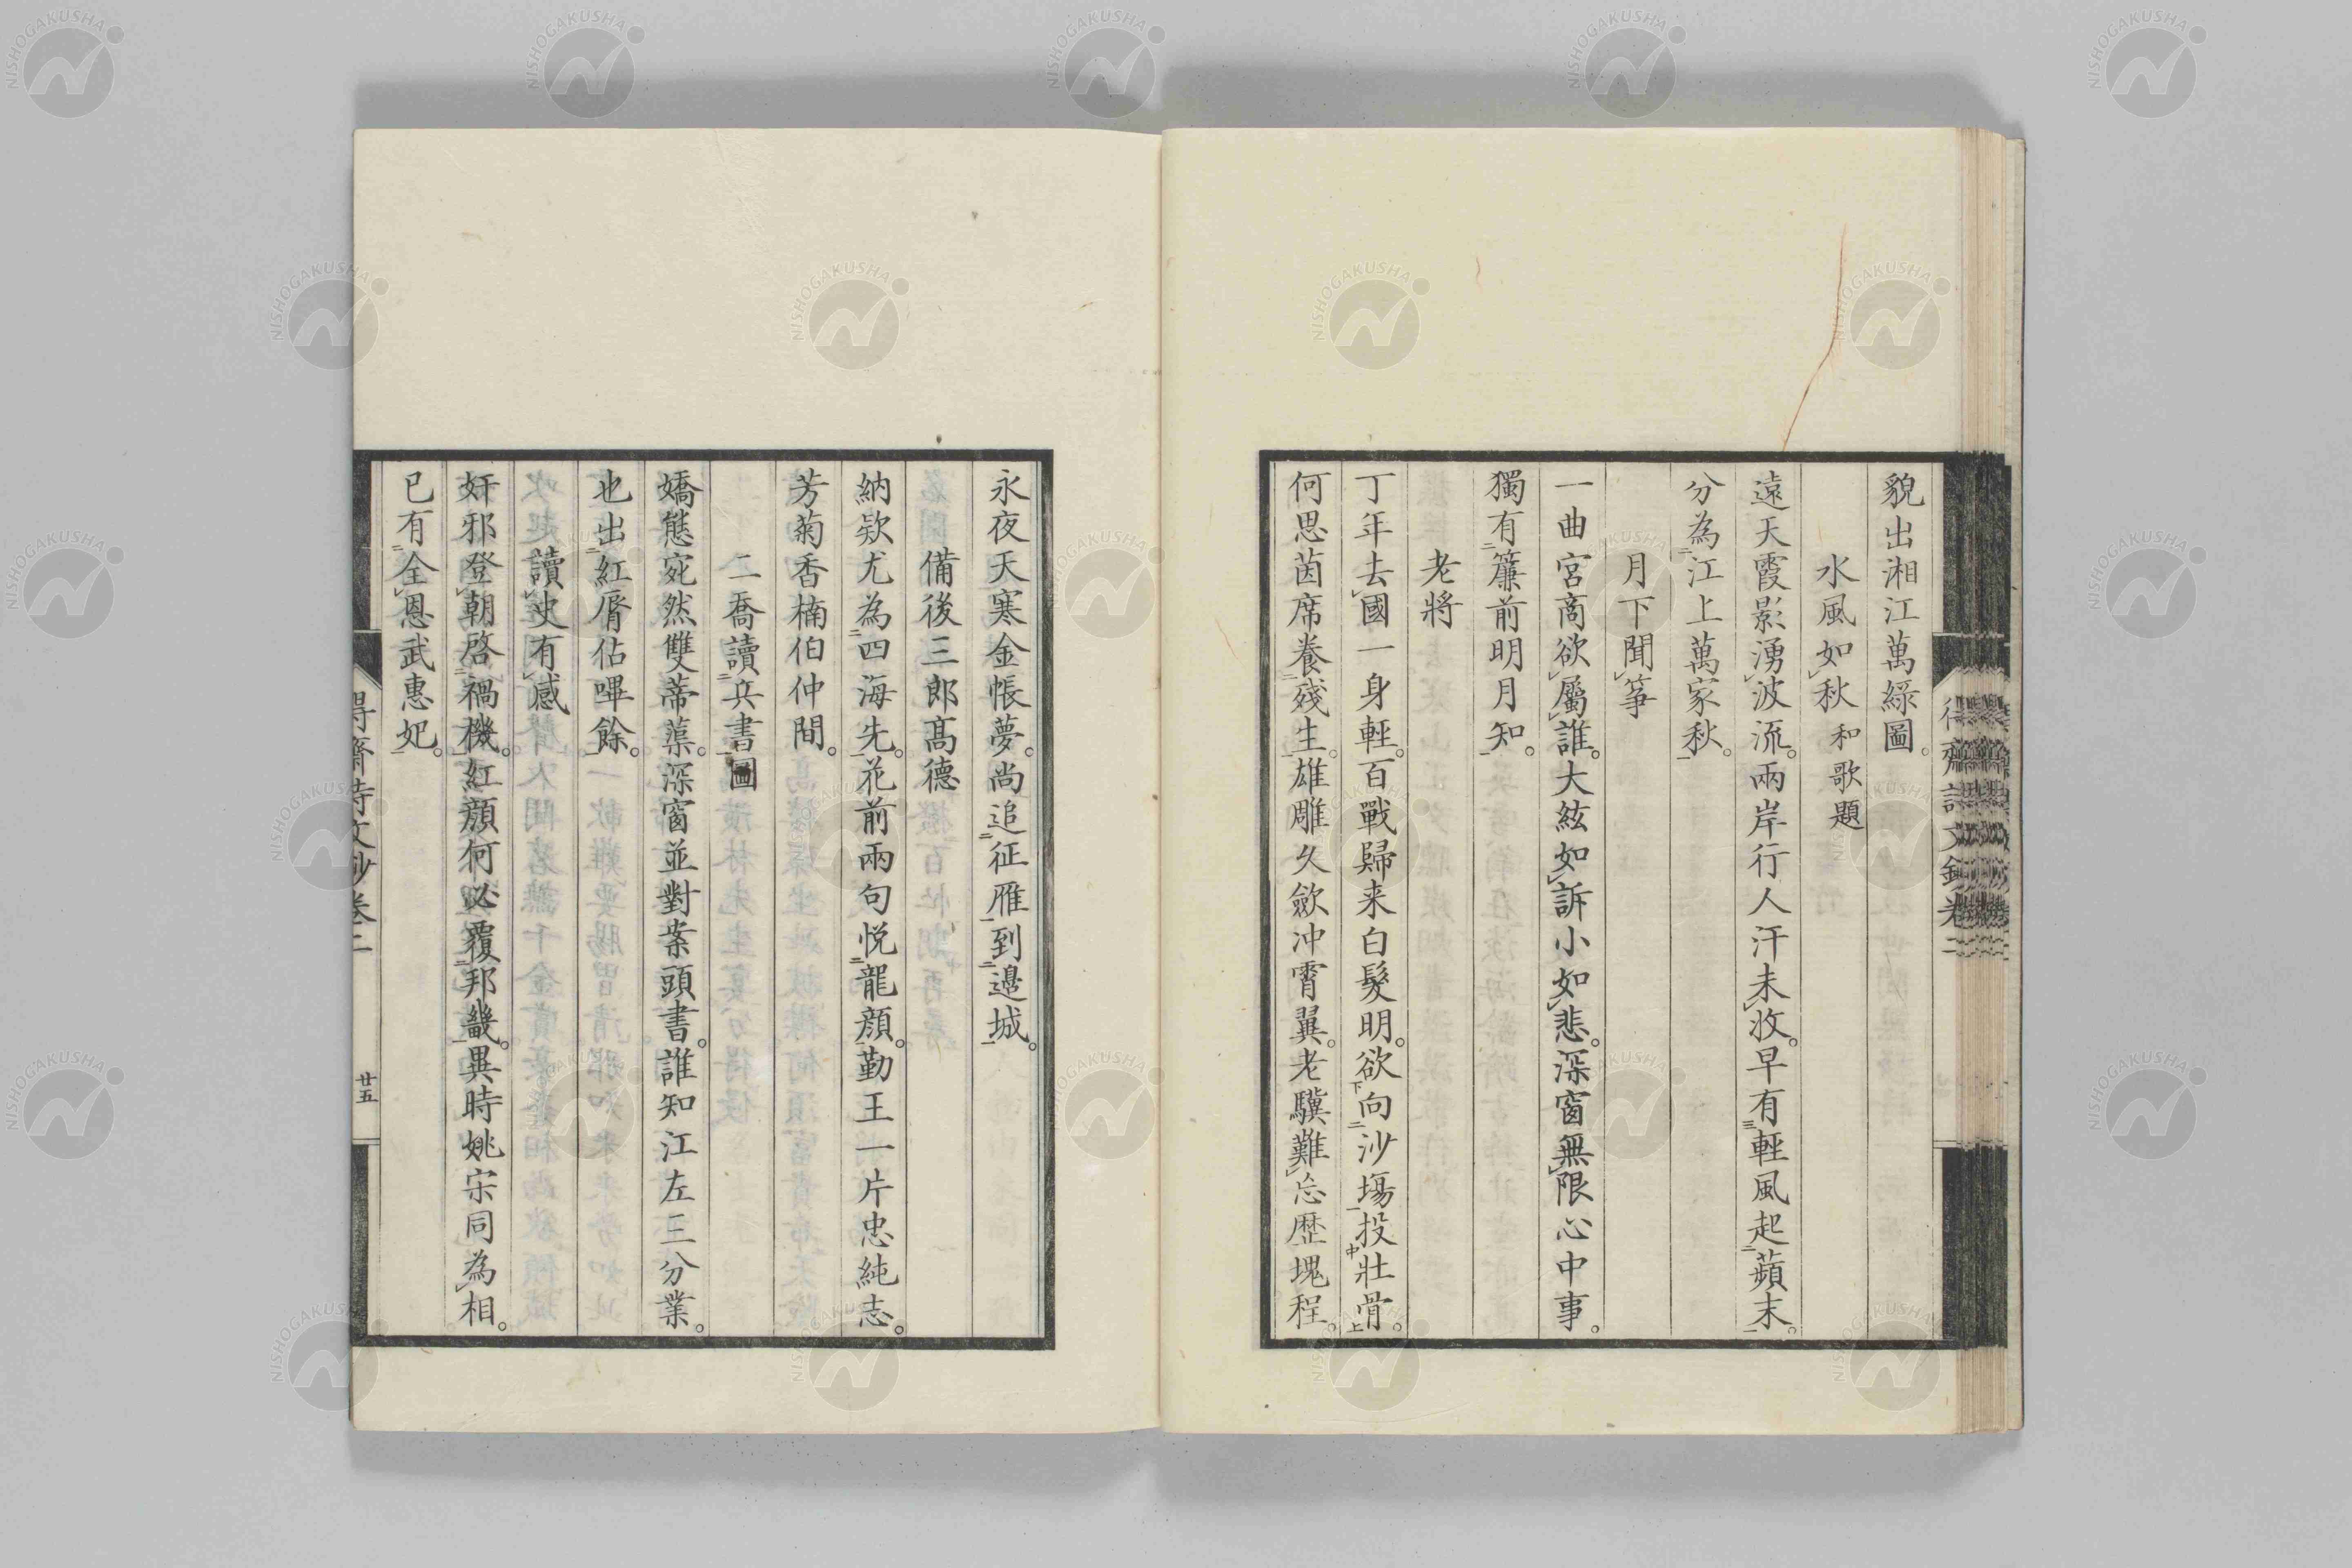 貌出湘江萬綠圖。
水風如レ秋 和歌題
遠天霞影湧レ波流。兩岸行人汗未レ收。早有三輕風起二蘋末一。
分為二江上萬家秋一。
月下聞レ箏
一曲宮商欲レ屬レ誰。大絃如レ訴小如レ悲。深窗無レ限心中事。
獨有二簾前明月知一。
老將
丁年去レ國一身輕。百戰歸来白髮明。欲下向二沙場一投中壯骨上。
何思茵席養二殘生一。雄雕久歛冲霄翼。老驥難レ忘歷塊程。
永夜天寒金帳夢。尚追二征雁一到二邊城一。
備後三郎高德
納欵尤為二四海先一。花前兩句悅二龍顏一。勤王一片忠純志。
芳菊香楠伯仲間。
二喬讀二兵書一圖
嬌態宛然雙蒂蕖。深窗並對案頭書。誰知江左三分業。
也出二紅脣佔嗶餘一。
讀レ史有レ感
奸邪登レ朝啓二禍機一。紅顏何必覆二邦畿一。異時姚宋同為レ相。
已有二全レ恩武惠妃一。
得齋詩文鈔卷二
廿五
NISHOGAKUSHA